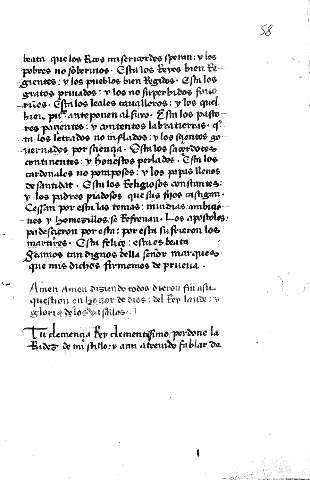 58
beata que los Ricos misericordes speran: y los
pobres no soberuios. Esta los Reyes bien Re-
gientes: y los pueblos bien Regidos. Esta los
gratos priuados: y los no superbidos
Esta los leales caualleros: y los quel
bien anteponen al suyo. Esta los pasto
res pacientes: y contentos labratierras.
ta los letrados no inflados: y los go
uernados por Esta los sacerdotes
continentes: y honestos perlados. Esta los
cardenales no pomposos: y los papas llenos
de santidat. Esta los Religiosos constantes:
y los padres piadosos que sus fijos castigan.
Cessan por esta las temas: inuidias
nes y se Refrenan. Los apostoles
padescieron por esta: por esta sufrieron los
martires. Esta felice: esta es beata
Seamos tan dignos della señor marques
que mis dichos firmemos de prueua.
Amen Amen diziendo todos dieron fin a su
question en honor de dios: del Rey laude: y
gloria de los
Tu clemença Rey clementissimo perdone la
Rudez de mi stillo: y aun atreuido fablar da